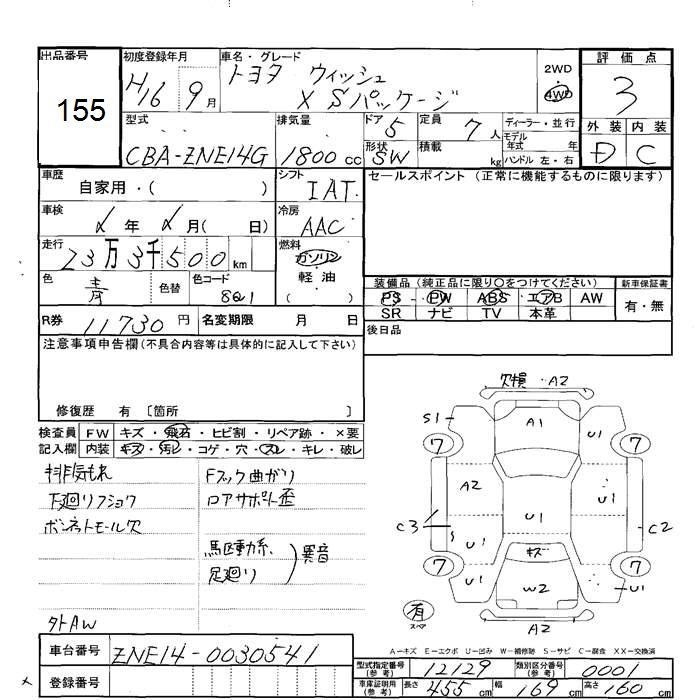 出品番号
155
初度登録年月
H16 9月
車名・グレード
トヨタ ウィッシュ
X Sパッケージ
2WD
4WD
評価点
3
外装 内装
D C
型式
CBA-ZNE14G
排気量
1800cc
ドア 5
形状 SW
定員 7人
積載 kg
ディーラー・並行
モデル年式 年
ハンドル 左・右
車歴
自家用・( )
シフト
IAT
セールスポイント(正常に機能するものに限ります)
車検
年 月( 日)
冷房
AAC
走行
23万3千500km
燃料
ガソリン
軽油
( )
色
青
色替
色コード
8Q1
装備品(純正品に限り○をつけてください)
PS PW ABS エアB AW
SR ナビ TV 本革
新車保証書
有・無
R券 11730円
名変期限 月 日
後日品
注意事項申告欄(不具合内容等は具体的に記入して下さい)
修復歴 有〔箇所 〕
検査員 FW キズ・飛石・ヒビ割・リペア跡・×要
記入欄 内装 キズ・汚レ・コゲ・穴・スレ・キレ・破レ
排気もれ
下廻りフショク
ボンネットモール欠
外AW
Fフック曲がり
ロアサポート歪
駆動系、
足廻り
異音
欠損・A2
S1
A1
U1
7
7
A2
U1
C3
U1
U1
C2
キズ
7
7
U1
W2
U1
有
スペア
A2
A-キズ E-エクボ U-凹み W-補修跡 S-サビ C-腐食 XX-交換済
車台番号
ZNE14-0030541
登録番号
型式指定番号(参考) 12129
類別区分番号(参考) 0001
車庫証明用(参考) 長さ 455cm 幅 169cm 高さ 160cm